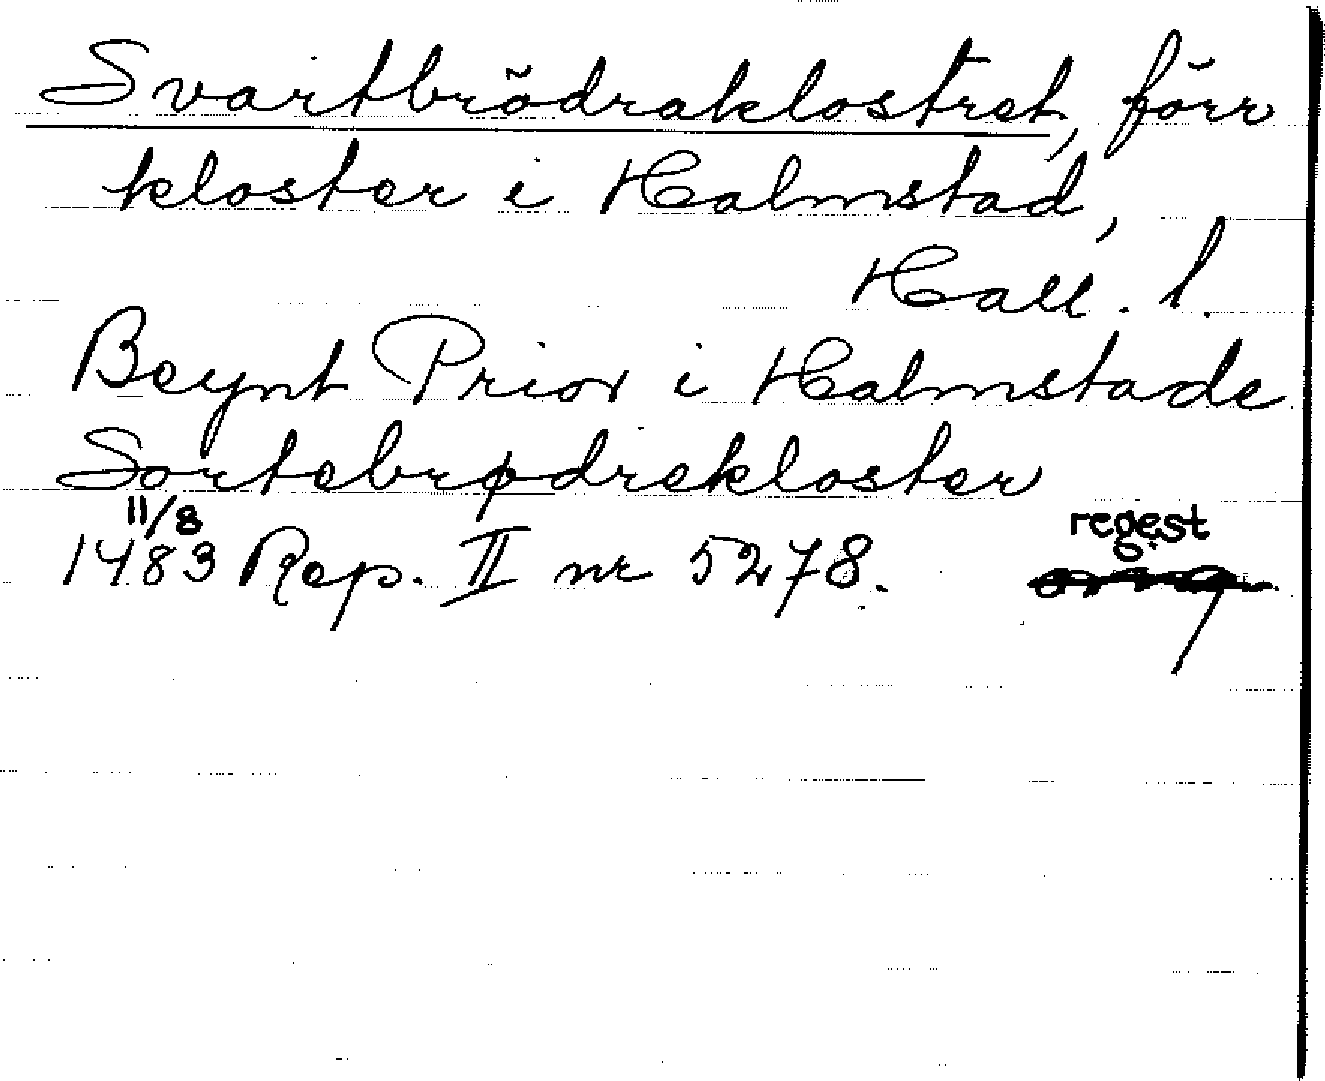 Svartbrödraklostret, förr
kloster i Halmstad,
Hall. l.
Beynt Prior i Halmstade
Sortebrødrekloster
11/8
1483 Rep. II nr 5278.
regest